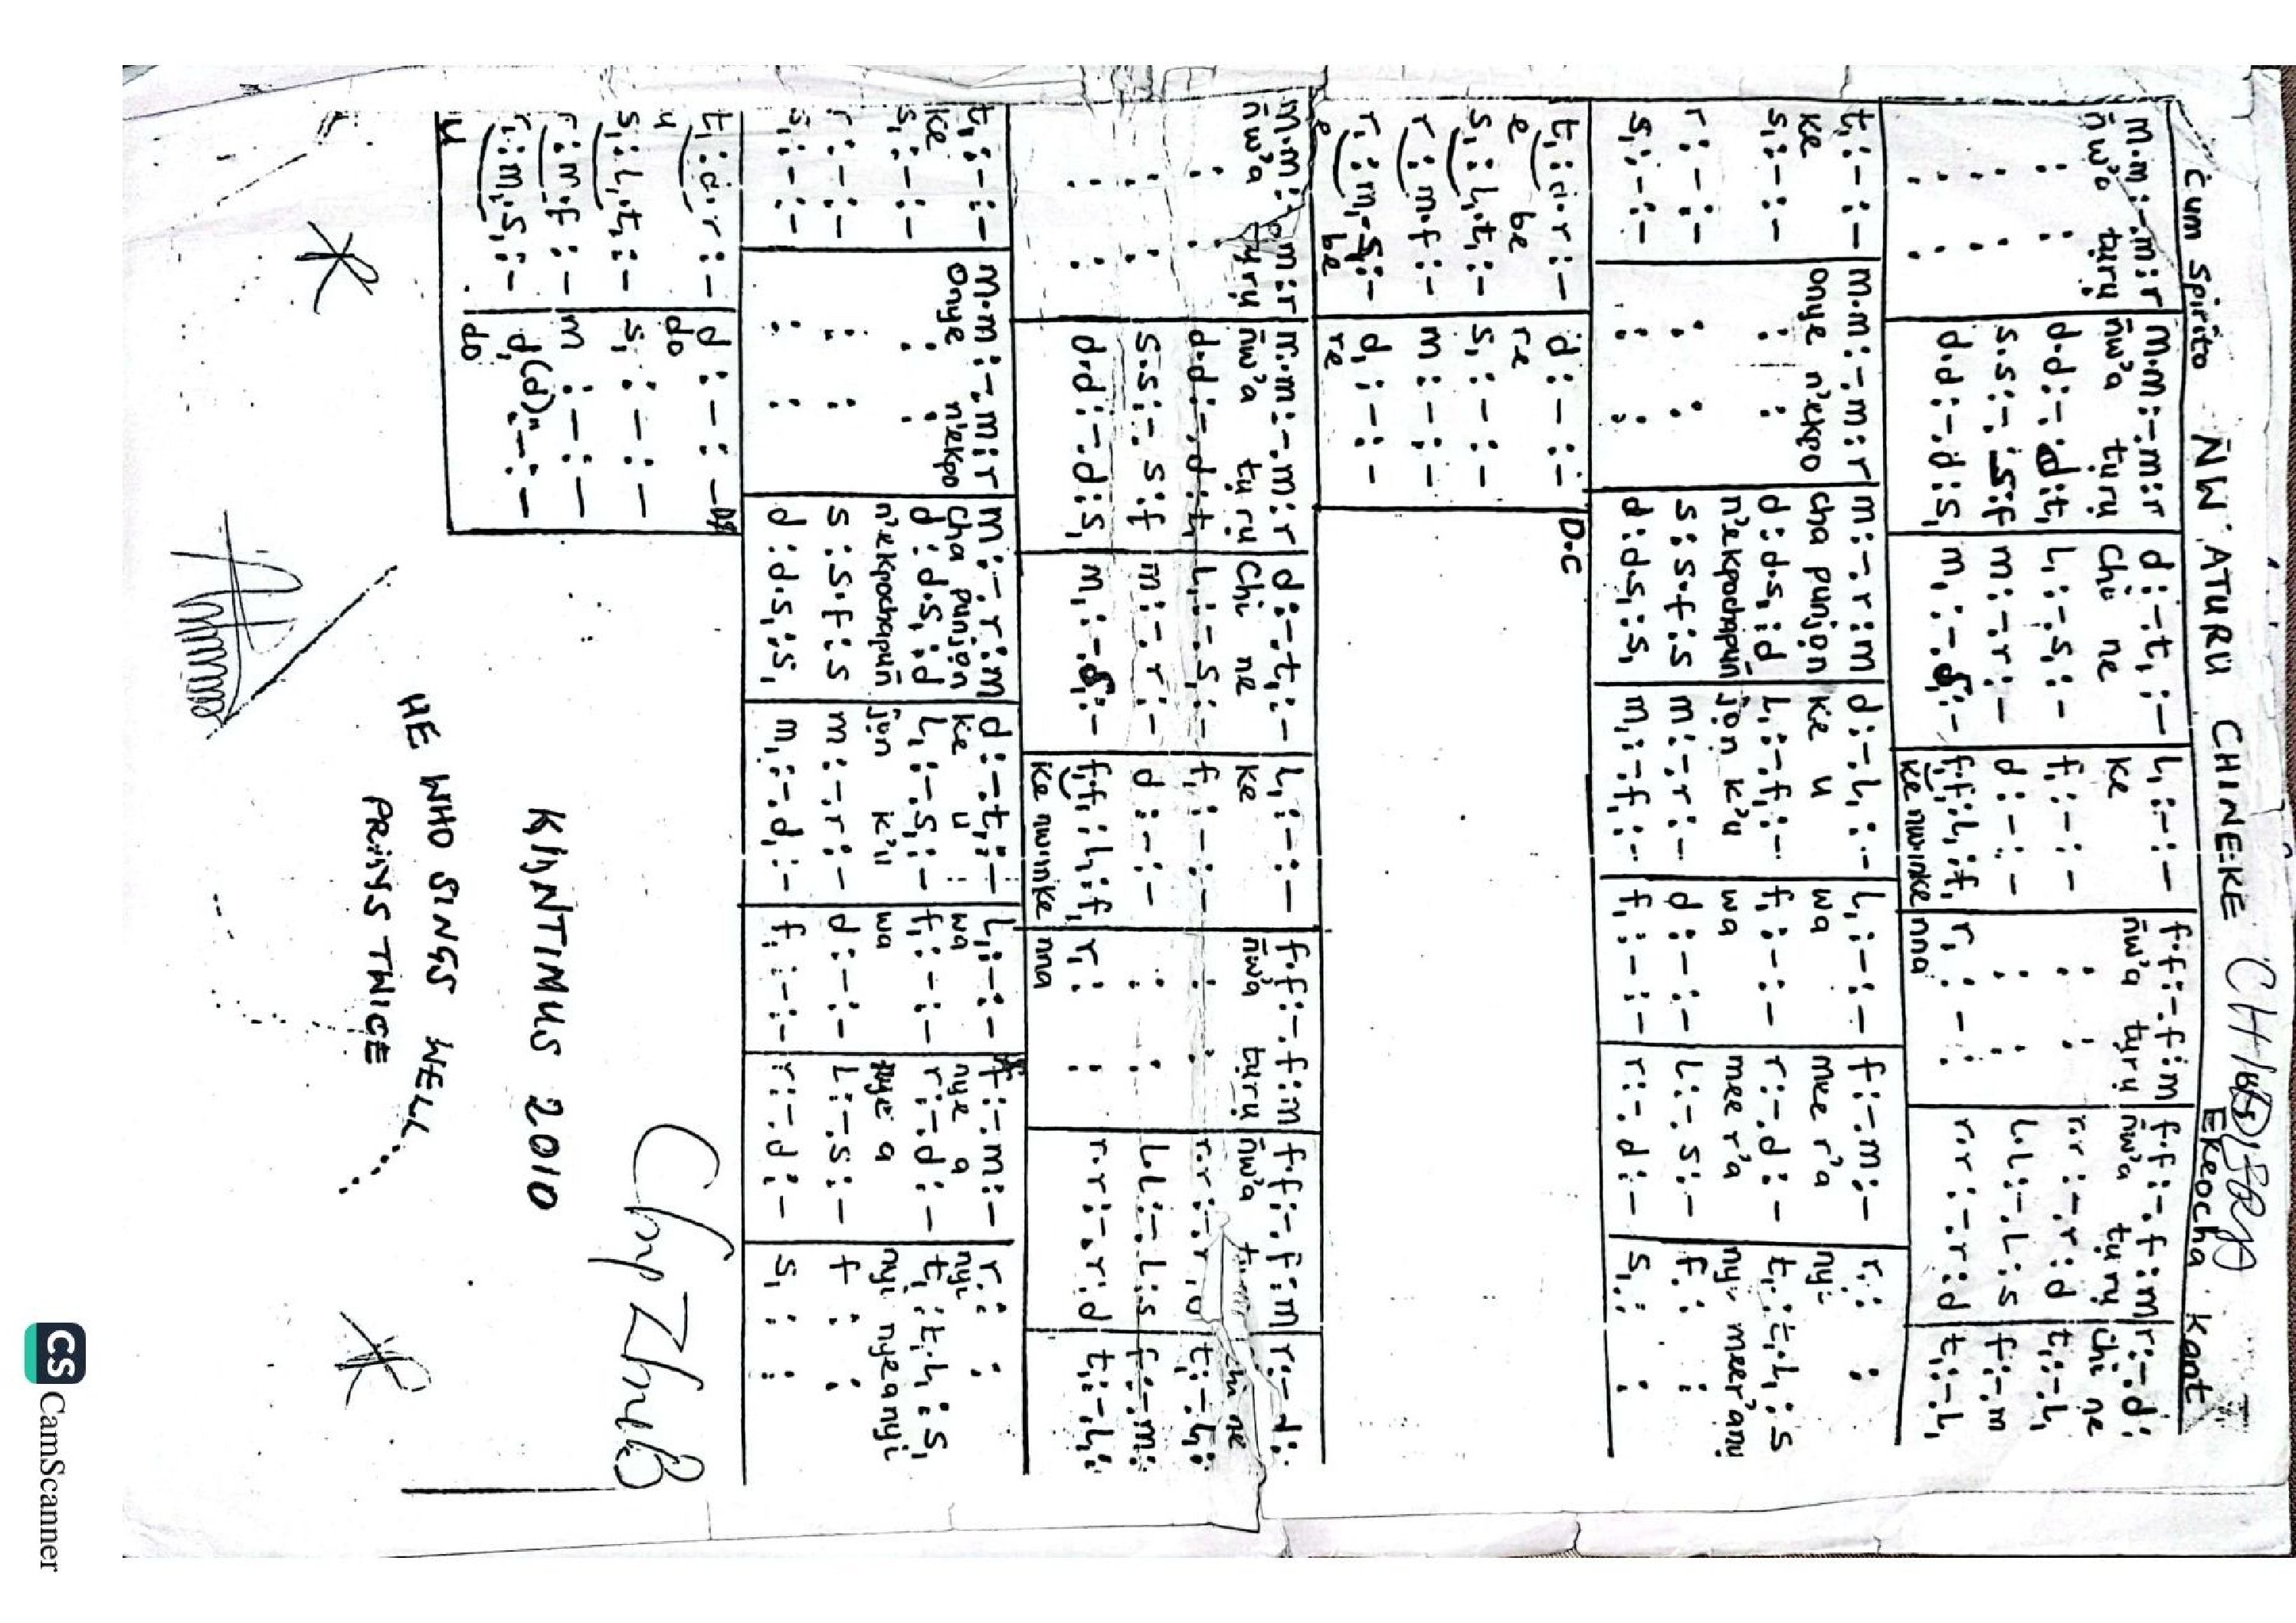 Cum Spirito ÑW'ATURU CHINEKE
Ekeocha Kant
m.m:-.m:r | m.m:-.m:r | d:-.t,:- | l,:-:- | f.f:-.f:m | f.f:-.f:m | r:-.d:
ñw'a tụrụ ñw'a tụrụ Chi ne ke ñw'a tụrụ ñw'a tụrụ Chi ne
: : | d.d:-.d:t, | l,:-.s,:- | f,:-:- | : : | r.r:-.r:d | t,:-.l,
: : | s.s:-.s:f | m:-.r:- | d:-:- | : : | l.l:-.l:s | f:-.m
: : | d.d:-.d:s, | m,:-.s,:- | f,.f,:l,:f, | r,:-: | r.r:-.r:d | t,:-.l,
ke nwinke nna
t,:-:- | m.m:-.m:r | m:-.r:m | d:-.l,:- | l,:-:- | f:-.m:- | r: :
ke onye n'ekpo cha punjọn ke u wa mee r'a nyi
s,:-:- | : : | d:d.s,:d | l,:-.f,:- | f,:-:- | r:-.d:- | t,:t,.l,:s
n'ekpochapụn jọn k'u wa mee r'a nyi meer'anyi
r:-:- | : : | s:s.f:s | m:-.r:- | d:-:- | l:-.s:- | f: :
s,:-:- | : : | d:d.s,:s, | m,:-.f,:- | f,:-:- | r:-.d:- | s,: :
t,:d.r:- | d:-:- D.C
e be re
s,:l,.t,:- | s,:-:-
r:m.f:- | m:-:-
r,:m,.s,:- | d,:-:-
e be re
m.m:-.m:r | m.m:-.m:r | d:-.t,:- | l,:-:- | f.f:-.f:m | f.f:-.f:m | r:-.d:
ñw'a tụrụ ñw'a tụrụ Chi ne ke ñw'a tụrụ ñw'a ne
: : | d.d:-.d:t, | l,:-.s,:- | f,:-:- | : : | r.r:-.r | t,:-.l,:
: : | s.s:-.s:f | m:-.r:- | d:-:- | : : | l.l:-.l:s | f:-.m:
: : | d.d:-.d:s, | m,:-.s,:- | f,.f,:l,:f, | r,: : | r.r:-.r:d | t,:-.l,:
ke nwinke nna
t,:-:- | m.m:-.m:r | m:-.r:m | d:-.t,:- | l,:-:- | f:-.m:- | r: :
ke Onye n'ekpo cha punjọn ke u wa nye a nyi
s,:-:- | : : | d:d.s,:d | l,:-.s,:- | f,:-:- | r:-.d:- | t,:t,.l,:s,
n'ekpochapụn jọn k'u wa nye a nyi nyeanyi
r:-:- | : : | s:s.f:s | m:-.r:- | d:-:- | l:-.s:- | f: :
s,:-:- | : : | d:d.s,:s, | m,:-.d,:- | f,:-:- | r:-.d:- | s,: :
t,:d.r:- | d:-:-
u do
s,:l,.t,:- | s,:-:-
r:m.f:- | m:-:-
r,:m,.s,:- | d,(d)":-:-
u do
KANTIMUS 2010
HE WHO SINGS WELL
PRAYS TWICE
CS CamScanner